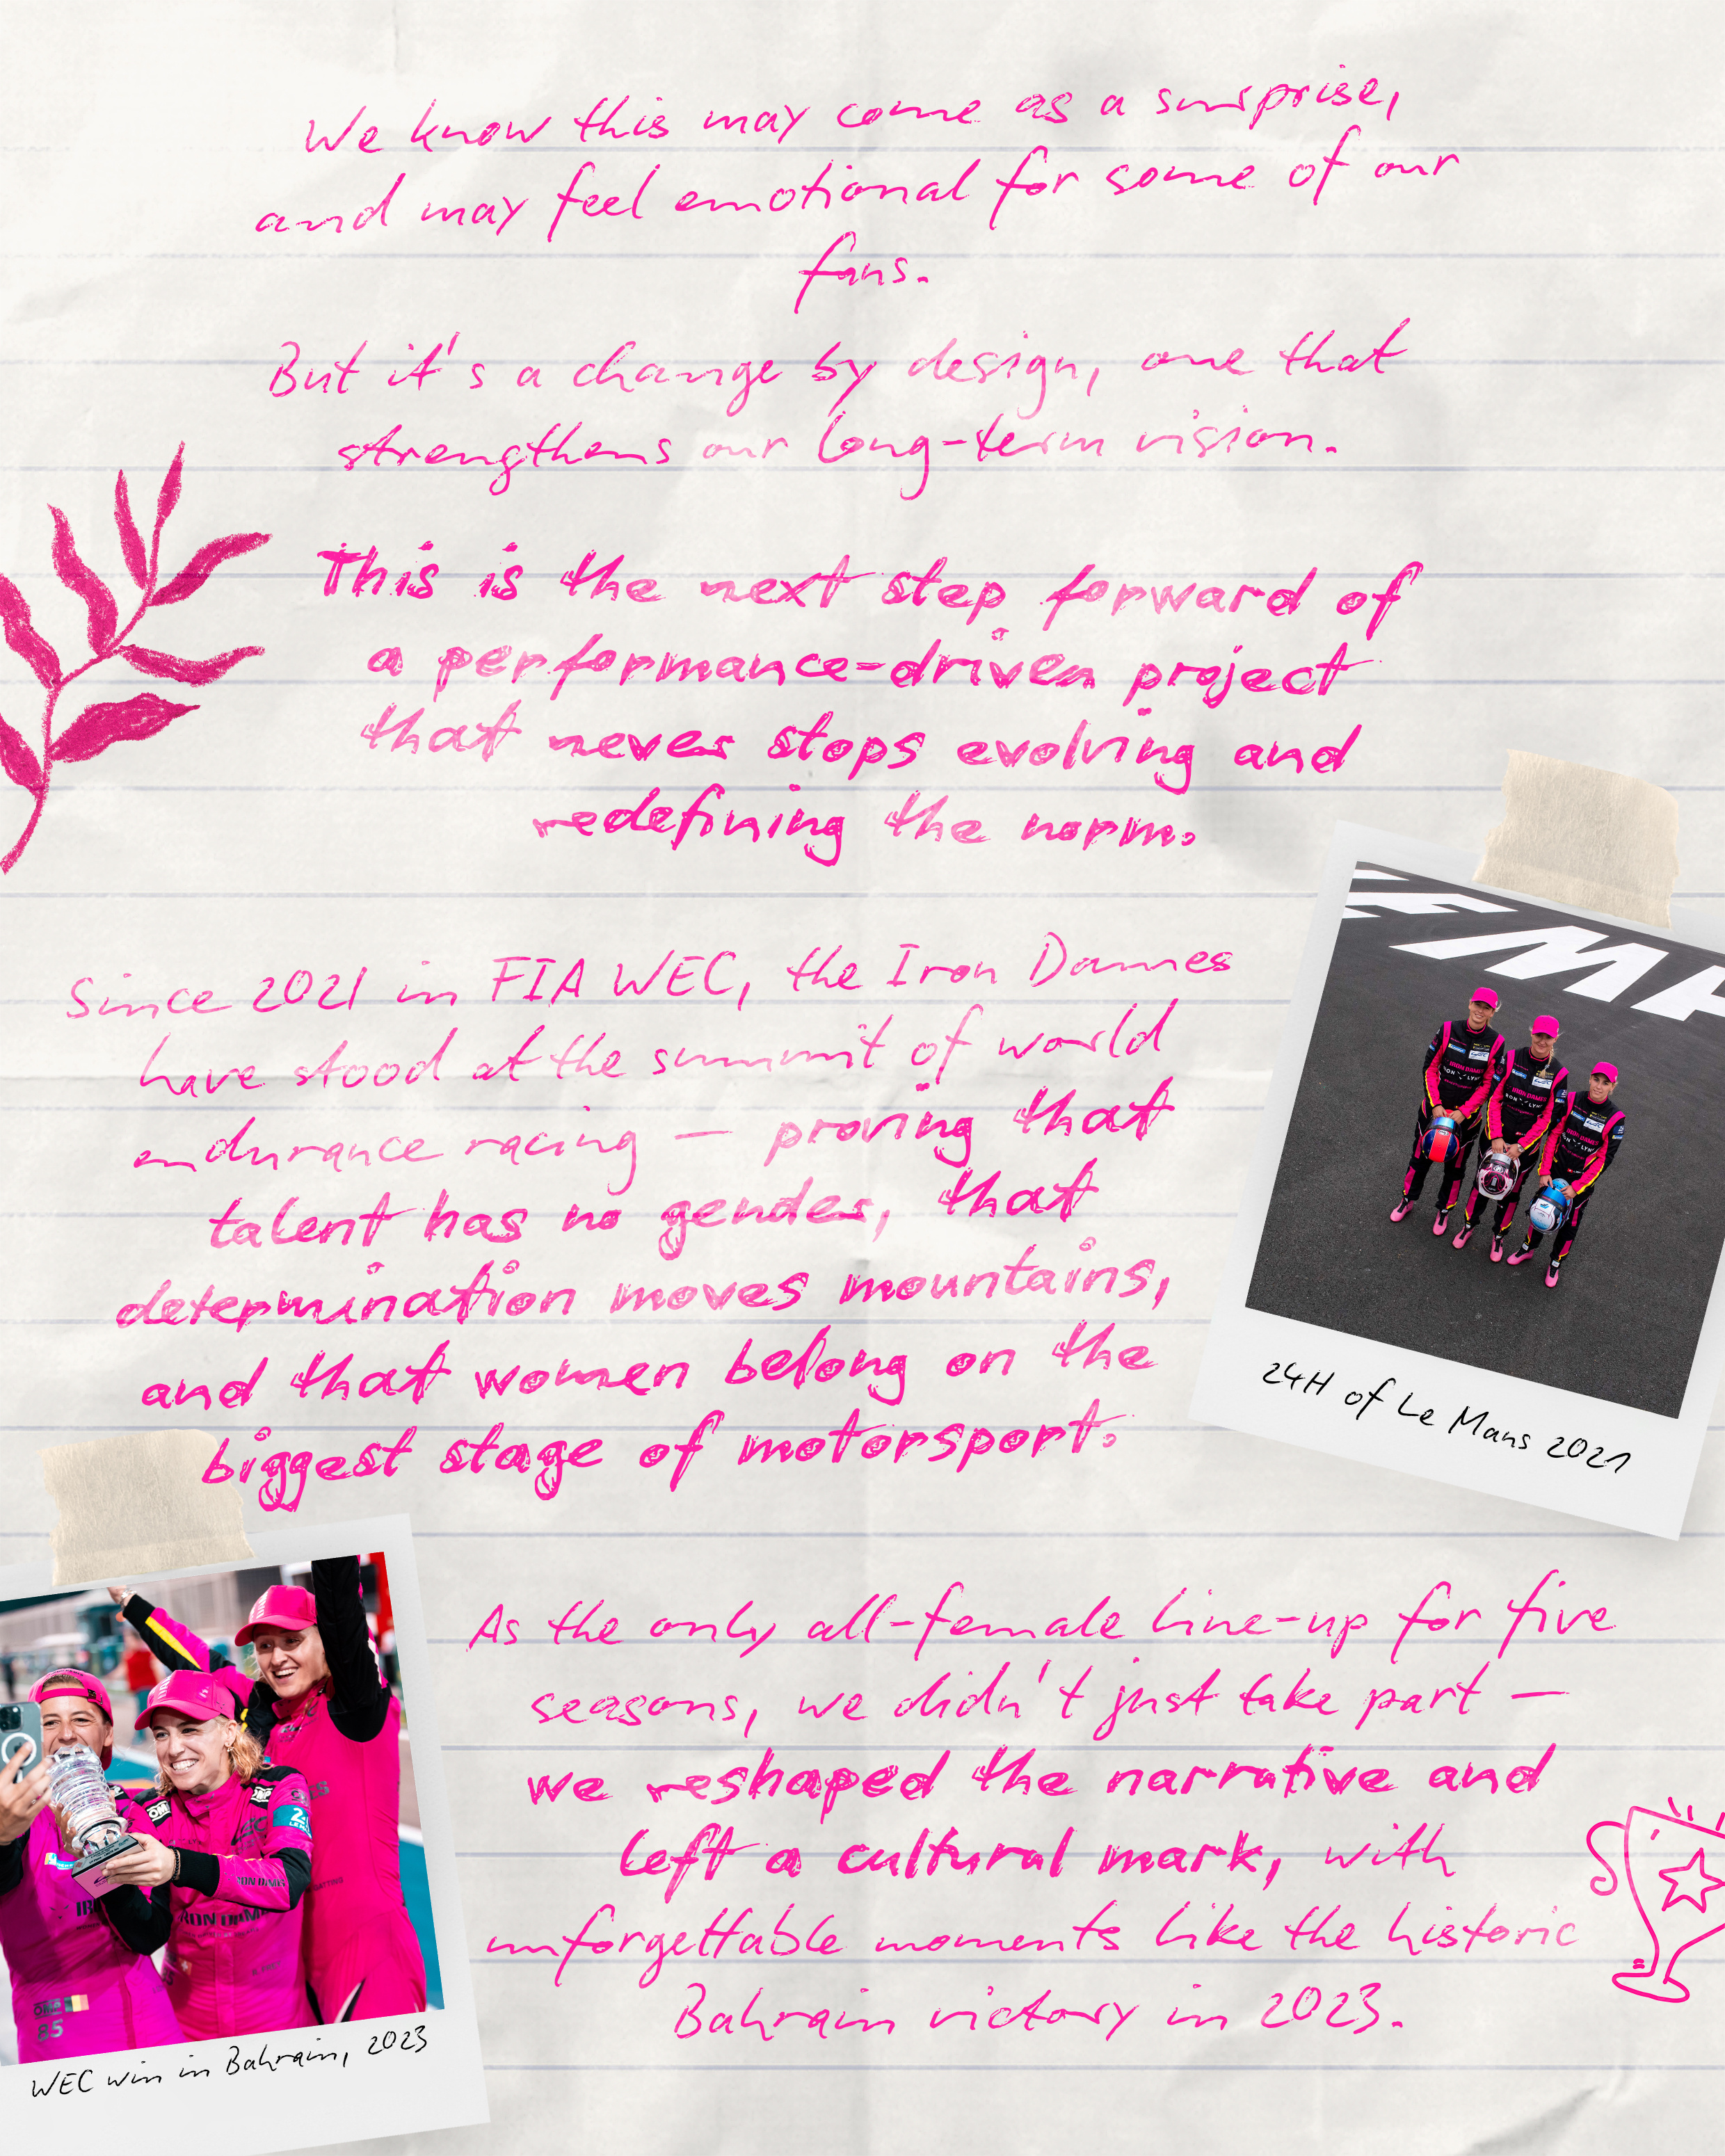 We know this may come as a surprise,
and may feel emotional for some of our
fans.
But it's a change by design, one that
strengthens our long-term vision.
This is the next step forward of
a performance-driven project
that never stops evolving and
redefining the norm.
Since 2021 in FIA WEC, the Iron Dames
have stood at the summit of world
endurance racing – proving that
talent has no gender, that
determination moves mountains,
and that women belong on the
biggest stage of motorsport.
24H of Le Mans 2021
As the only all-female line-up for five
seasons, we didn't just take part –
we reshaped the narrative and
left a cultural mark, with
unforgettable moments like the historic
Bahrain victory in 2023.
OMP
85
WEC win in Bahrain, 2023